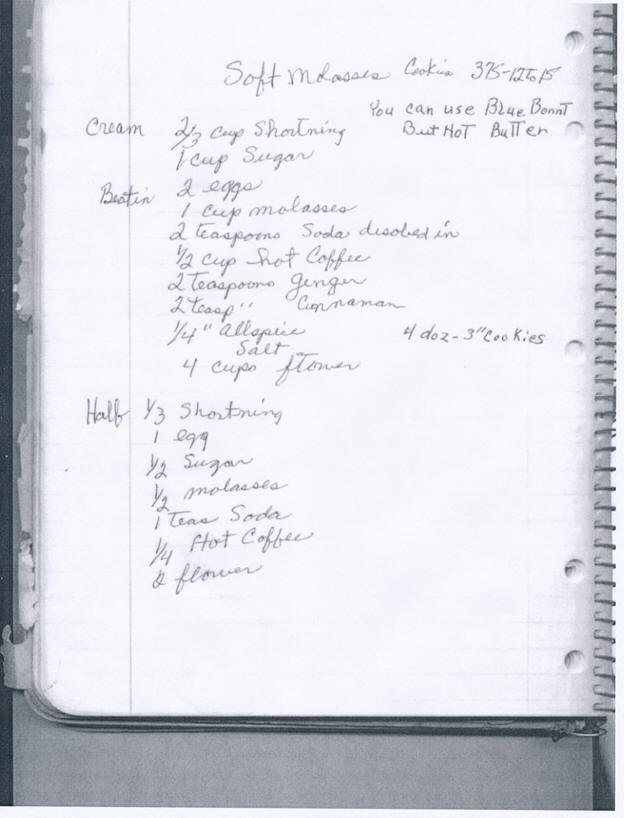 Soft Molasses Cookies 375-12 to 15
You can use Blue Bonnt
But NOT Butter
Cream 2/3 cup Shortning
1 cup Sugar
Beatin 2 eggs
1 cup molasses
2 teaspoons Soda disolved in
1/2 cup Hot Coffee
2 teaspoons ginger
2 teasp " Cinnaman
1/4 " Allspice
Salt
4 doz - 3" Cookies
4 cups flower
Half 1/3 Shortning
1 egg
1/2 Sugar
1/2 molasses
1 Teas Soda
1/4 Hot Coffee
2 flower